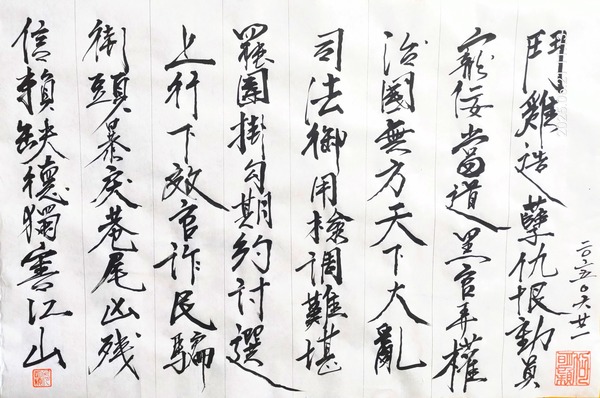 鬥雞造孽仇恨動員
寵佞當道黑官弄權
治國無方天下大亂
司法御用檢調難堪
罷團掛勾期約討選
上行下效官詐民騙
街頭暴戾巷尾凶残
信賴缺德獨害江山
二〇二五〇六廿一